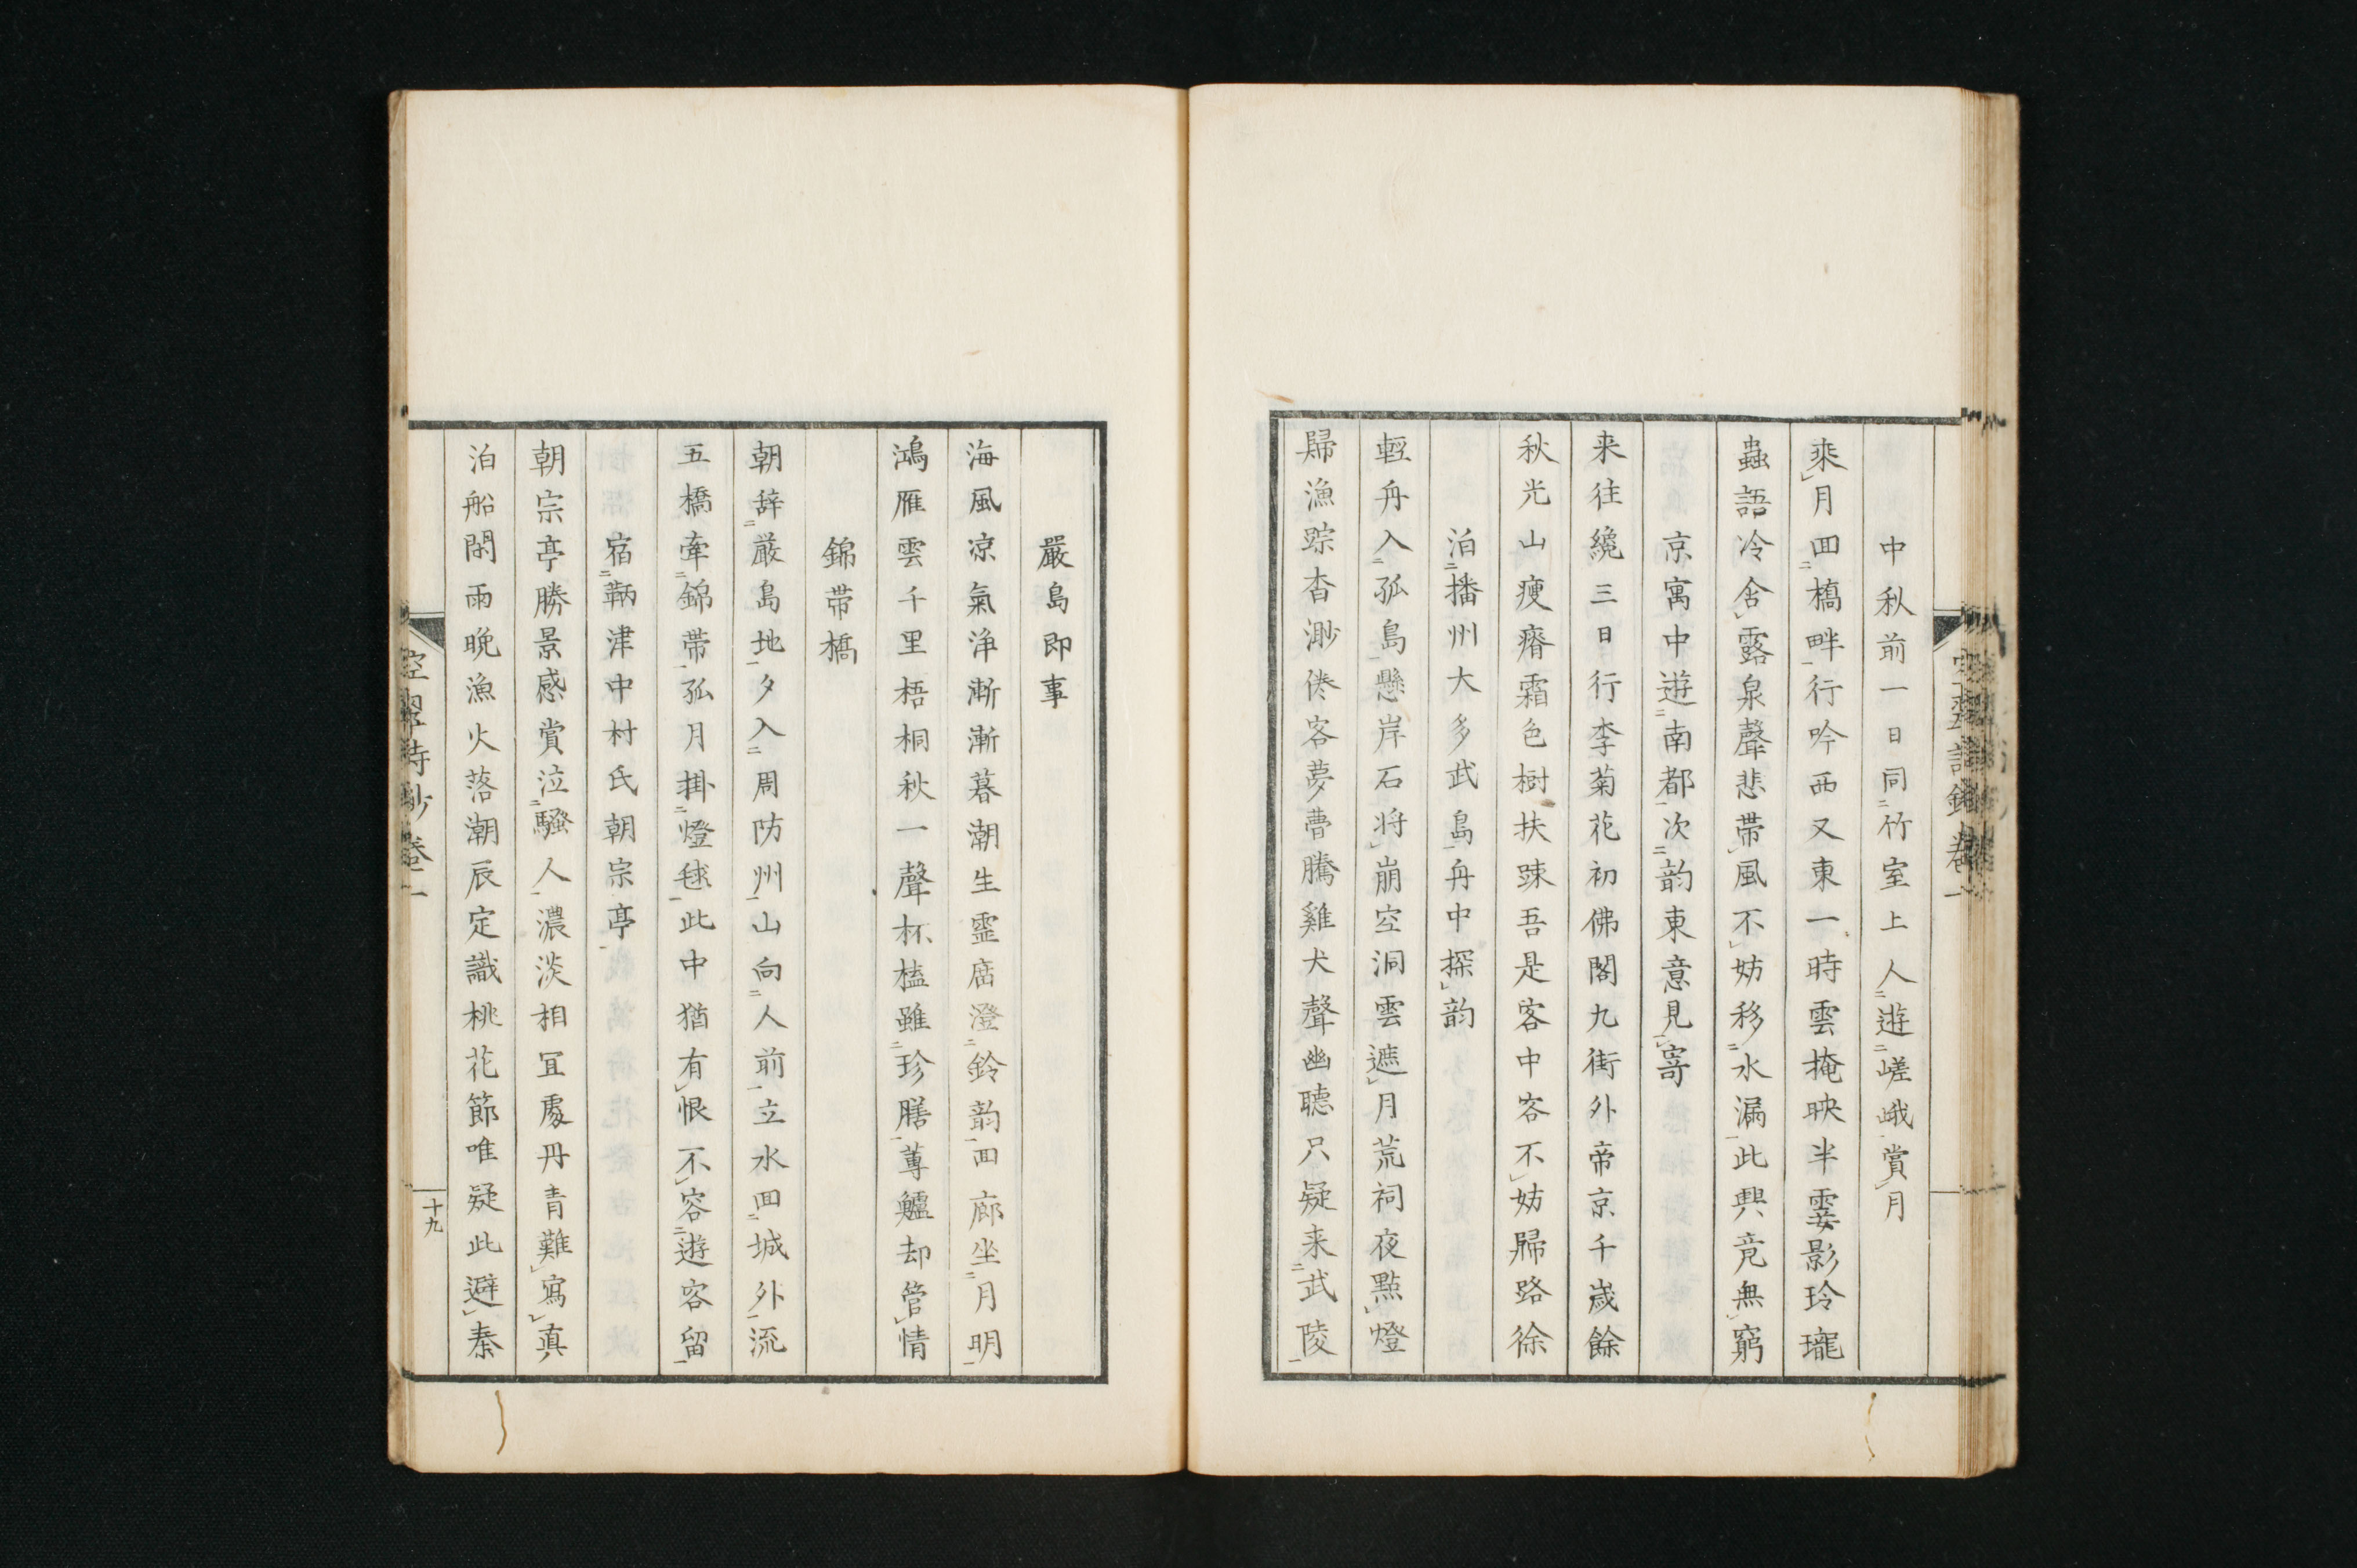 中秋前一日同竹室上人遊嵯峨賞月
乘月回橋畔行吟西又東一時雲掩映半霎影玲瓏
蟲語冷舍露泉聲悲帶風不妨移水漏此興竟無窮
京寓中遊南都次韵東意見寄
来往纔三日行李菊花初佛閣九街外帝京千歲餘
秋光山瘦瘠霜色樹扶踈吾是客中客不妨歸路徐
泊播州大多武島舟中探韵
輕舟入孤島懸岸石將崩空洞雲遮月荒祠夜點燈
歸漁踪杳渺倦客夢曹騰雞犬聲幽聽只疑来武陵
嚴島即事
海風凉氣浄漸漸暮潮生靈廟澄鈴韵回廊坐月明
鴻雁雲千里梧桐秋一聲杯榼雖珍膳蓴鱸却管情
錦帯橋
朝辞厳島地夕入周防州山向人前立水回城外流
五橋牽錦帯孤月掛燈毬此中猶有恨不容遊客留
宿鞆津中村氏朝宗亭
朝宗亭勝景感賞泣騷人濃淡相冝處丹青難寫真
泊船閑雨晚漁火落潮辰定識桃花節唯疑此避秦
空翠詩鈔卷一
十九